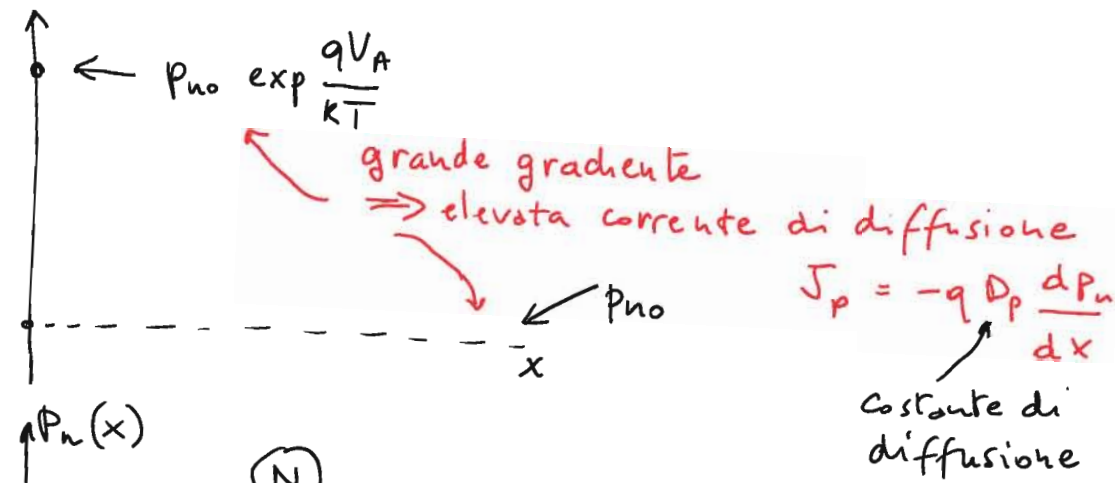 ← p_no exp qV_A / kT
grande gradiente
⇒ elevata corrente di diffusione
J_p = -q D_p dp_n / dx
p_no
x
costante di
diffusione
p_n(x)
N